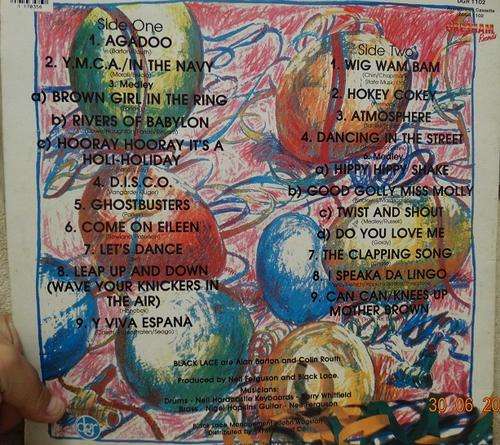 DGR 1102
Side One
1. AGADOO
2. Y.M.C.A./IN THE NAVY
3. Medley
a) BROWN GIRL IN THE RING
b) RIVERS OF BABYLON
c) HOORAY HOORAY IT'S A
HOLI-HOLIDAY
4. D.I.S.C.O.
5. GHOSTBUSTERS
6. COME ON EILEEN
7. LET'S DANCE
8. LEAP UP AND DOWN
(WAVE YOUR KNICKERS IN
THE AIR)
9. Y VIVA ESPANA
Side Two
1. WIG WAM BAM
2. HOKEY COKEY
3. ATMOSPHERE
4. DANCING IN THE STREET
Medley
a) HIPPY HIPPY SHAKE
b) GOOD GOLLY MISS MOLLY
c) TWIST AND SHOUT
d) DO YOU LOVE ME
7. THE CLAPPING SONG
8. I SPEAKA DA LINGO
9. CAN CAN/KNEES UP
MOTHER BROWN
BLACK LACE are Alan Barton and Colin Routh
Produced by Neil Ferguson and Black Lace.
Musicians:
Drums - Neil Hardcastle Keyboards - Terry Whitfield
Brass - Nigel Hopkins Guitar - Neil Ferguson
Black Lace Management - John Wagstaff
Distributed by
30.06.20